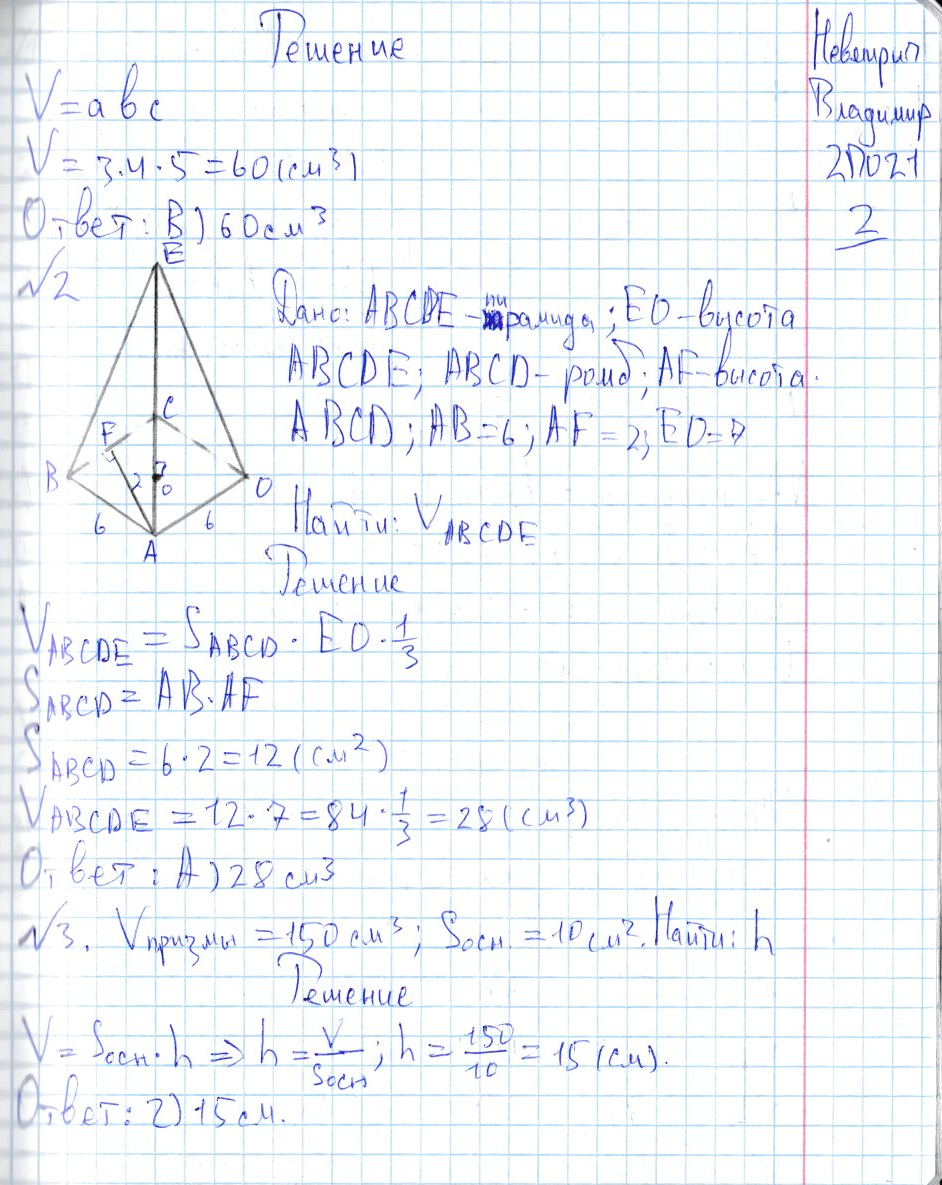 Решение
V = a b c
V = 3·4·5 = 60 (см³)
Ответ: В) 60 см³
Владимир
2П021
2
№2
E
C
F
B
2
7
O
O
6
6
A
Дано: ABCDE - пирамида; EO - высота
ABCDE; ABCD - ромб; AF - высота.
ABCD; AB = 6; AF = 2; EO = 7
Найти: V ABCDE
Решение
V ABCDE = S ABCD · EO · 1/3
S ABCD = AB · AF
S ABCD = 6 · 2 = 12 (см²)
V ABCDE = 12 · 7 = 84 · 1/3 = 28 (см³)
Ответ: А) 28 см3
№3. V призмы = 150 см³; S осн. = 10 см². Найти: h
Решение
V = S осн · h ⇒ h = V/S осн; h = 150/10 = 15 (см).
Ответ: 2) 15 см.